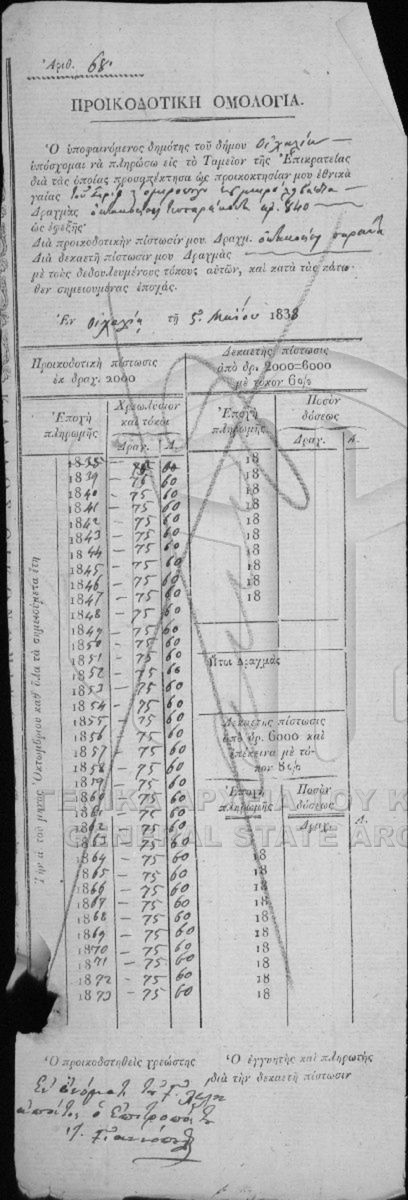 Ἀριθ. 68.
ΠΡΟΙΚΟΔΟΤΙΚΗ ΟΜΟΛΟΓΙΑ.
Ὁ ὑποφαινόμενος δημότης τοῦ δήμου Οἰχαλίας
ὑπόσχομαι νὰ πληρώσω εἰς τὸ Ταμεῖον τῆς Ἐπικρατείας
διὰ τὰς ὁποίας προαπέκτησα ὡς προικοκτησίαν μου ἐθνικὰ
γαίας
Δραχμὰς ὀκτακοσίας τεσσαράκοντα ἀρ. 840
ὡς ἐφεξῆς·
Διὰ προικοδοτικὴν πίστωσίν μου Δραχμ. ὀκτακοσίας
Διὰ δεκαετῆ πίστωσίν μου Δραχμὰς
μὲ τοὺς δεδουλευμένους τόκους αὐτῶν, καὶ κατὰ τὰς κάτω-
θεν σημειουμένας ἐποχάς.
Ἐν Οἰχαλίᾳ τῇ 5 Μαΐου 1838
Προικοδοτικὴ πίστωσις
ἐκ δραχ. 2000
Δεκαετὴς πίστωσις
ἀπὸ δρ. 2000=6000
μὲ τόκον 6 0/0
Ἐποχὴ
πληρωμῆς
Χρεωλύσιον
καὶ τόκοι
Δραχ. Λ.
Ἐποχὴ
πληρωμῆς
Ποσὸν
δόσεως
Δραχ. Λ.
Τὴν ά τοῦ μηνὸς Ὀκτωμβρίου καθ' ὅλα τὰ σημειούμενα ἔτη
1838 — 75 60 18
1839 — 75 60 18
1840 — 75 60 18
1841 — 75 60 18
1842 — 75 60 18
1843 — 75 60 18
1844 — 75 60 18
1845 — 75 60 18
1846 — 75 60 18
1847 — 75 60 18
1848 — 75 60
1849 — 75 60
1850 — 75 60
1851 — 75 60
Ἤτοι Δραχμὰς
1852 — 75 60
1853 — 75 60
1854 — 75 60
1855 — 75 60
1856 — 75 60
1857 — 75 60
1858 — 75 60
1859 — 75 60
1860 — 75 60
1861 — 75 60
1862 — 75 60
1863 — 75 60
Δεκαετὴς πίστωσις
ἀπὸ δρ. 6000 καὶ
ἐπέκεινα μὲ τό-
κον 8 0/0
Ἐποχὴ
πληρωμῆς
Ποσὸν
δόσεως
Δραχ. Λ.
1864 — 75 60 18
1865 — 75 60 18
1866 — 75 60 18
1867 — 75 60 18
1868 — 75 60 18
1869 — 75 60 18
1870 — 75 60 18
1871 — 75 60 18
1872 — 75 60 18
1873 — 75 60 18
ΓΕΝΙΚΑ ΑΡΧΕΙΑ ΤΟΥ Κ
GENERAL STATE ARC
Ὁ προικοδοτηθεὶς χρεώστης
Ὁ ἐγγυητὴς καὶ πληρωτὴς
διὰ τὴν δεκαετῆ πίστωσιν